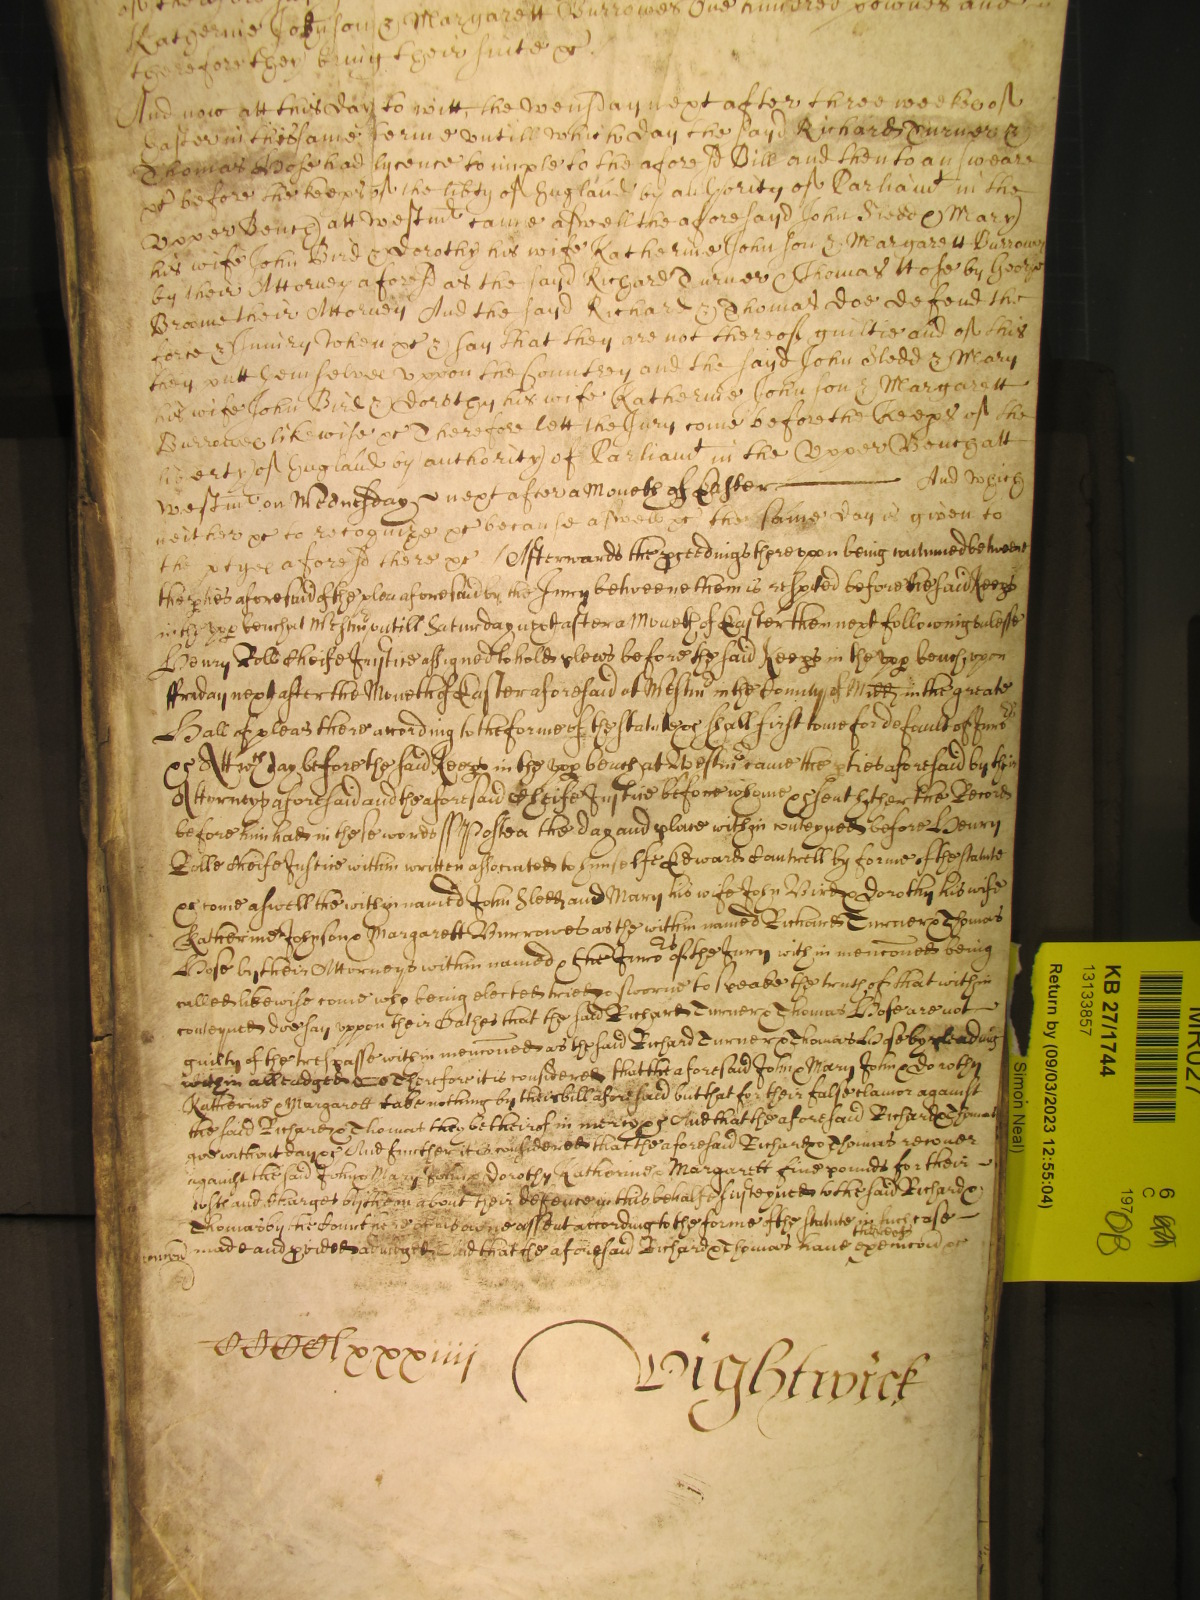 Katherine Johnson & Margarett Burrowes One hundred pownds and
therefore they bring their suite &c.
And now att this day to witt, the wensday next after three weekes of
Easter in this same terme untill which day the sayd Richard Turner &
Thomas Hose had lycence to imple to the afores'd Bill and then to answeare
&c before the keeps of the lib'ty of England by authority of Parliam't in the
Upper Bench att Westm' came aswell the aforesayd John Sledd & Mary
his wife John Bird & Dorothy his wife Katherine Johnson & Margarett Burrowes
by their Attorney afores'd as the sayd Richard Turner & Thomas Hose by George
Broome their Attorney And the sayd Richard & Thomas doe defend the
force & Iniury when &c & say that they are not thereof guiltie and of this
they putt themselves uppon the Countrey and the sayd John Sledd & Mary
his wife John Bird & Dorothy his wife Katherine Johnson & Margarett
Burrowes likewise &c Therefore lett the Jury come before the keeps of the
liberty of England by authority of Parliam't in the Upper Bench att
Westm' on Wednesday next after a Moneth of Easter And which
neither &c to recognize &c because aswell &c the same day is given to
the p'tyes afores'd there &c Afterwards the p'ceedings thereupon being continued betweene
the p'ties aforesaid of the plea aforesaid by the Jury betweene them is respited before the said Keeps
in the upp' bench at Westm' untill Saturday next after a Moneth of Easter then next following unlesse
Henry Rolle Cheife Justice assigned to hold plees before the said Keeps in the upp' bench upon
ffriday next after the Moneth of Easter aforesaid at Westm' in the County of Midd in the greate
Hall of pleas there according to the forme of the statute &c shall first come for default of Juro'rs
&c Att w'ch day before the said Keeps in the upp' bench at Westm' came the p'ties aforesaid by their
Attorneys aforesaid and the aforesaid Cheife Justice before whome &c sent hether the Record
before him had in these words ss Postea the day and place within conteyned before Henry
Rolle Cheife Justice within written associated to himselfe Edward Cantwell by forme of the statute
&c come aswell the within named John Sledd and Mary his wife John Bird & Dorothy his wife
Katherine Johnson & Margarett Burrowes as the within named Richard Turner & Thomas
Hose by their Attorneys within named & the Juro'rs of the Jury within menc'oned being
called likewise come who being elected tried & sworne to speake the truth of that within
conteyned doe say uppon their Oathes that the said Richard Turner & Thomas Hose are not
guilty of the trespasse within menc'oned as the said Richard Turner & Thomas Hose by pleading
within alleadged Therefore it is considered that the aforesaid John & Mary John & Dorothy
Katherine & Margarett take nothing by their bill aforesaid but that for their false clamor against
the said Richard & Thomas they be theirof in mercy &c And that the aforesaid Richard & Thomas
goe without day &c And further it is considered that the aforesaid Richard & Thomas recover
against the said John & Mary John & Dorothy Katherine & Margarett five pounds for their
costs and charges by them about their defence in this behalfe susteyned to the said Richard &
Thomas by the Court here of assent according to the forme of the statute in such case
made and p'vided adiudged And that the aforesaid Richard & Thomas have thereof execuc'on &c
CCCClxxxiiij Wightwick
KB 27/1744
13133857
Return by (09/03/2023 12:55:04)
Simon Neal)
6
C
197